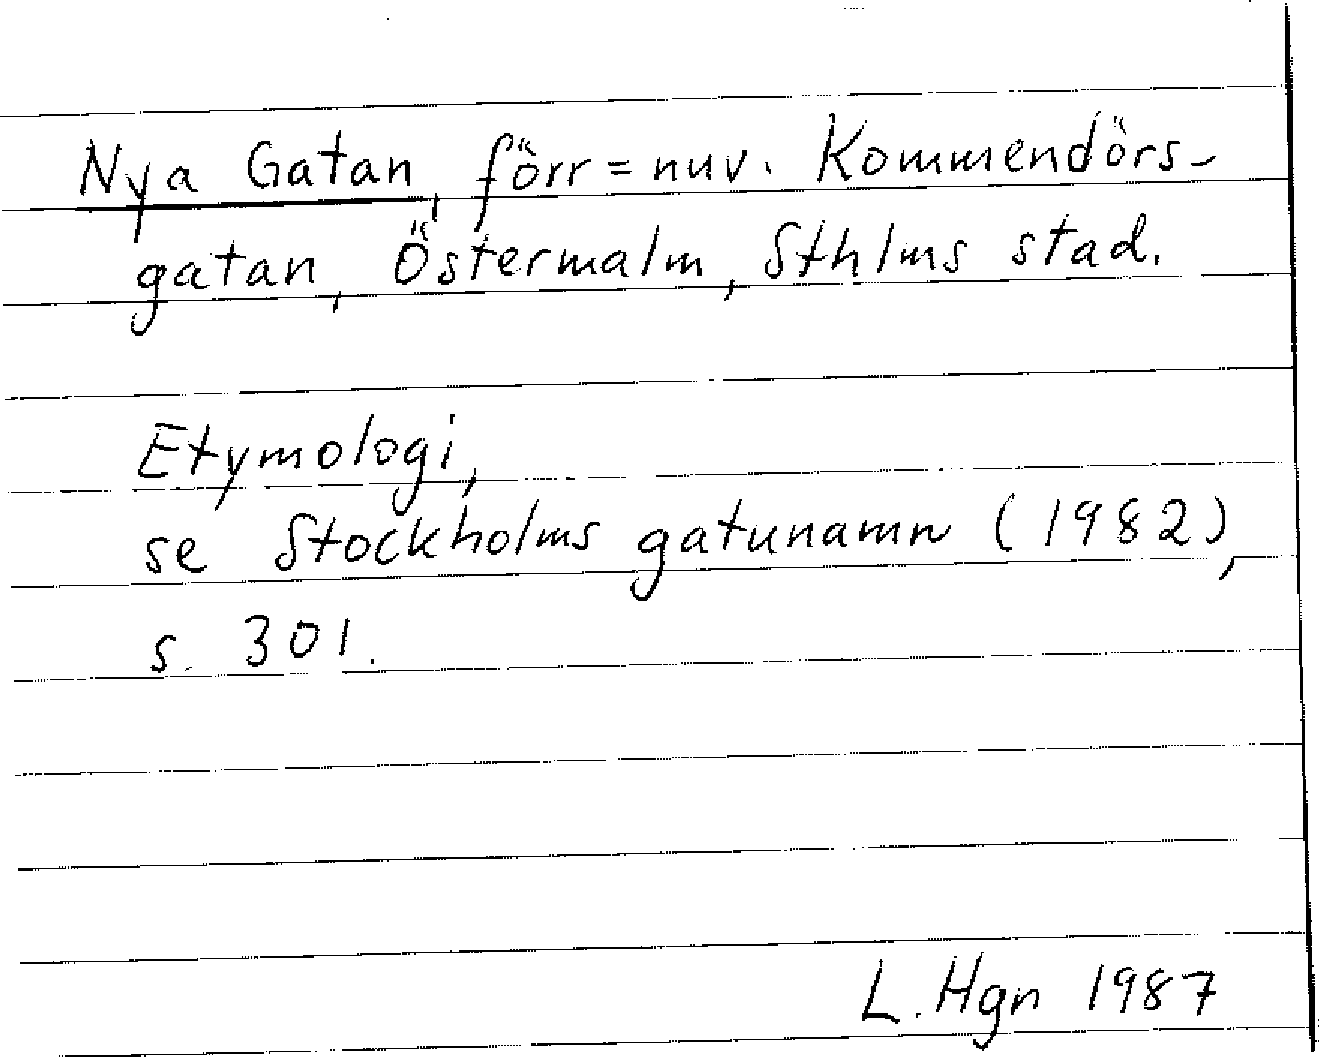 Nya Gatan, förr = nuv. Kommendörs-
gatan, Östermalm, Sthlms stad.
Etymologi,
se Stockholms gatunamn (1982),
s. 301.
L. Hgn 1987